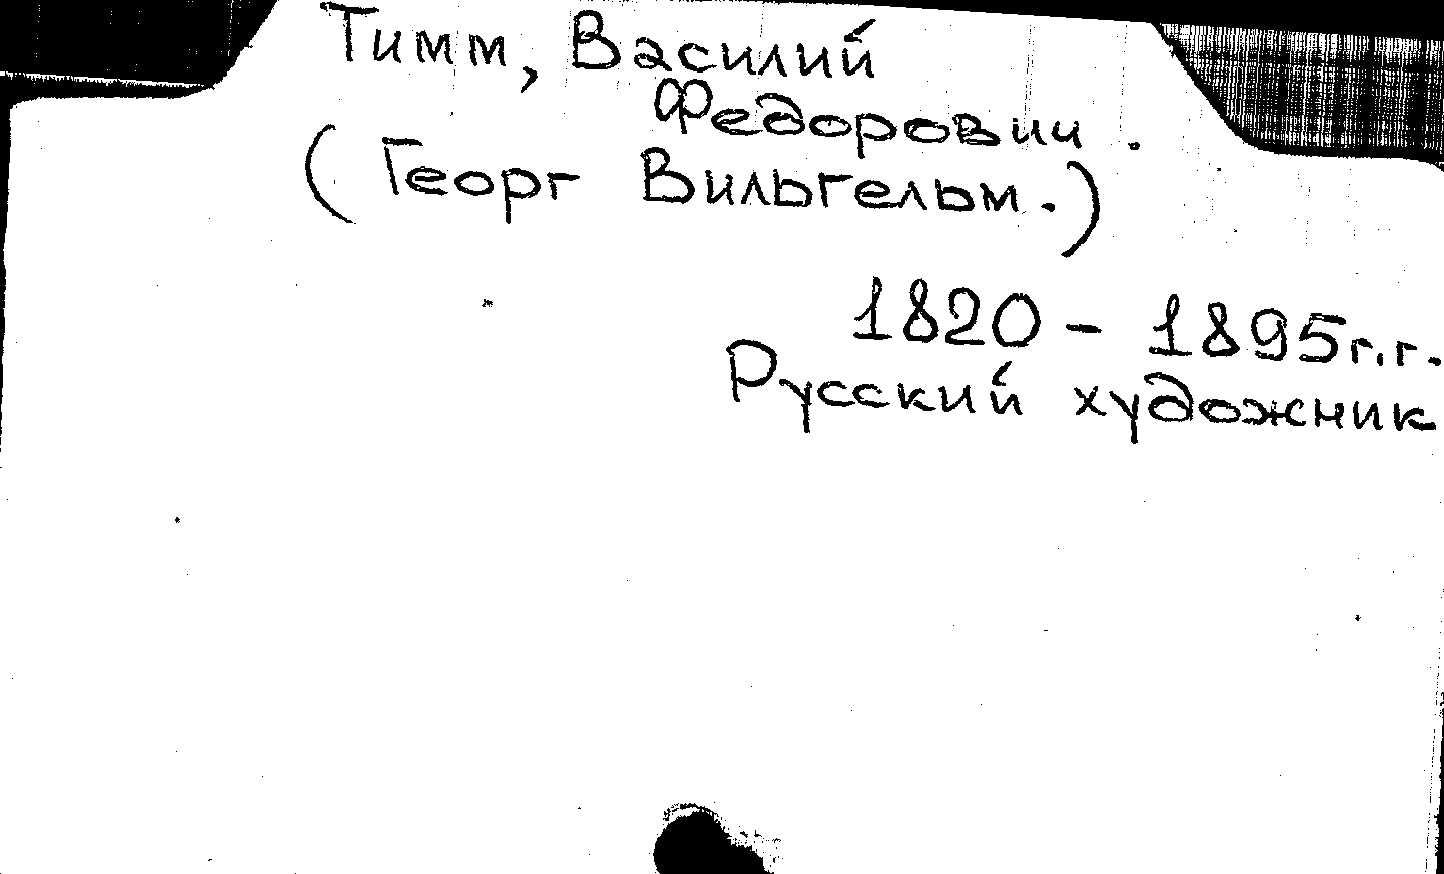 Тимм, Василий
Федорович.
(Георг Вильгельм.)
1820 - 1895г.г.
Русский художник